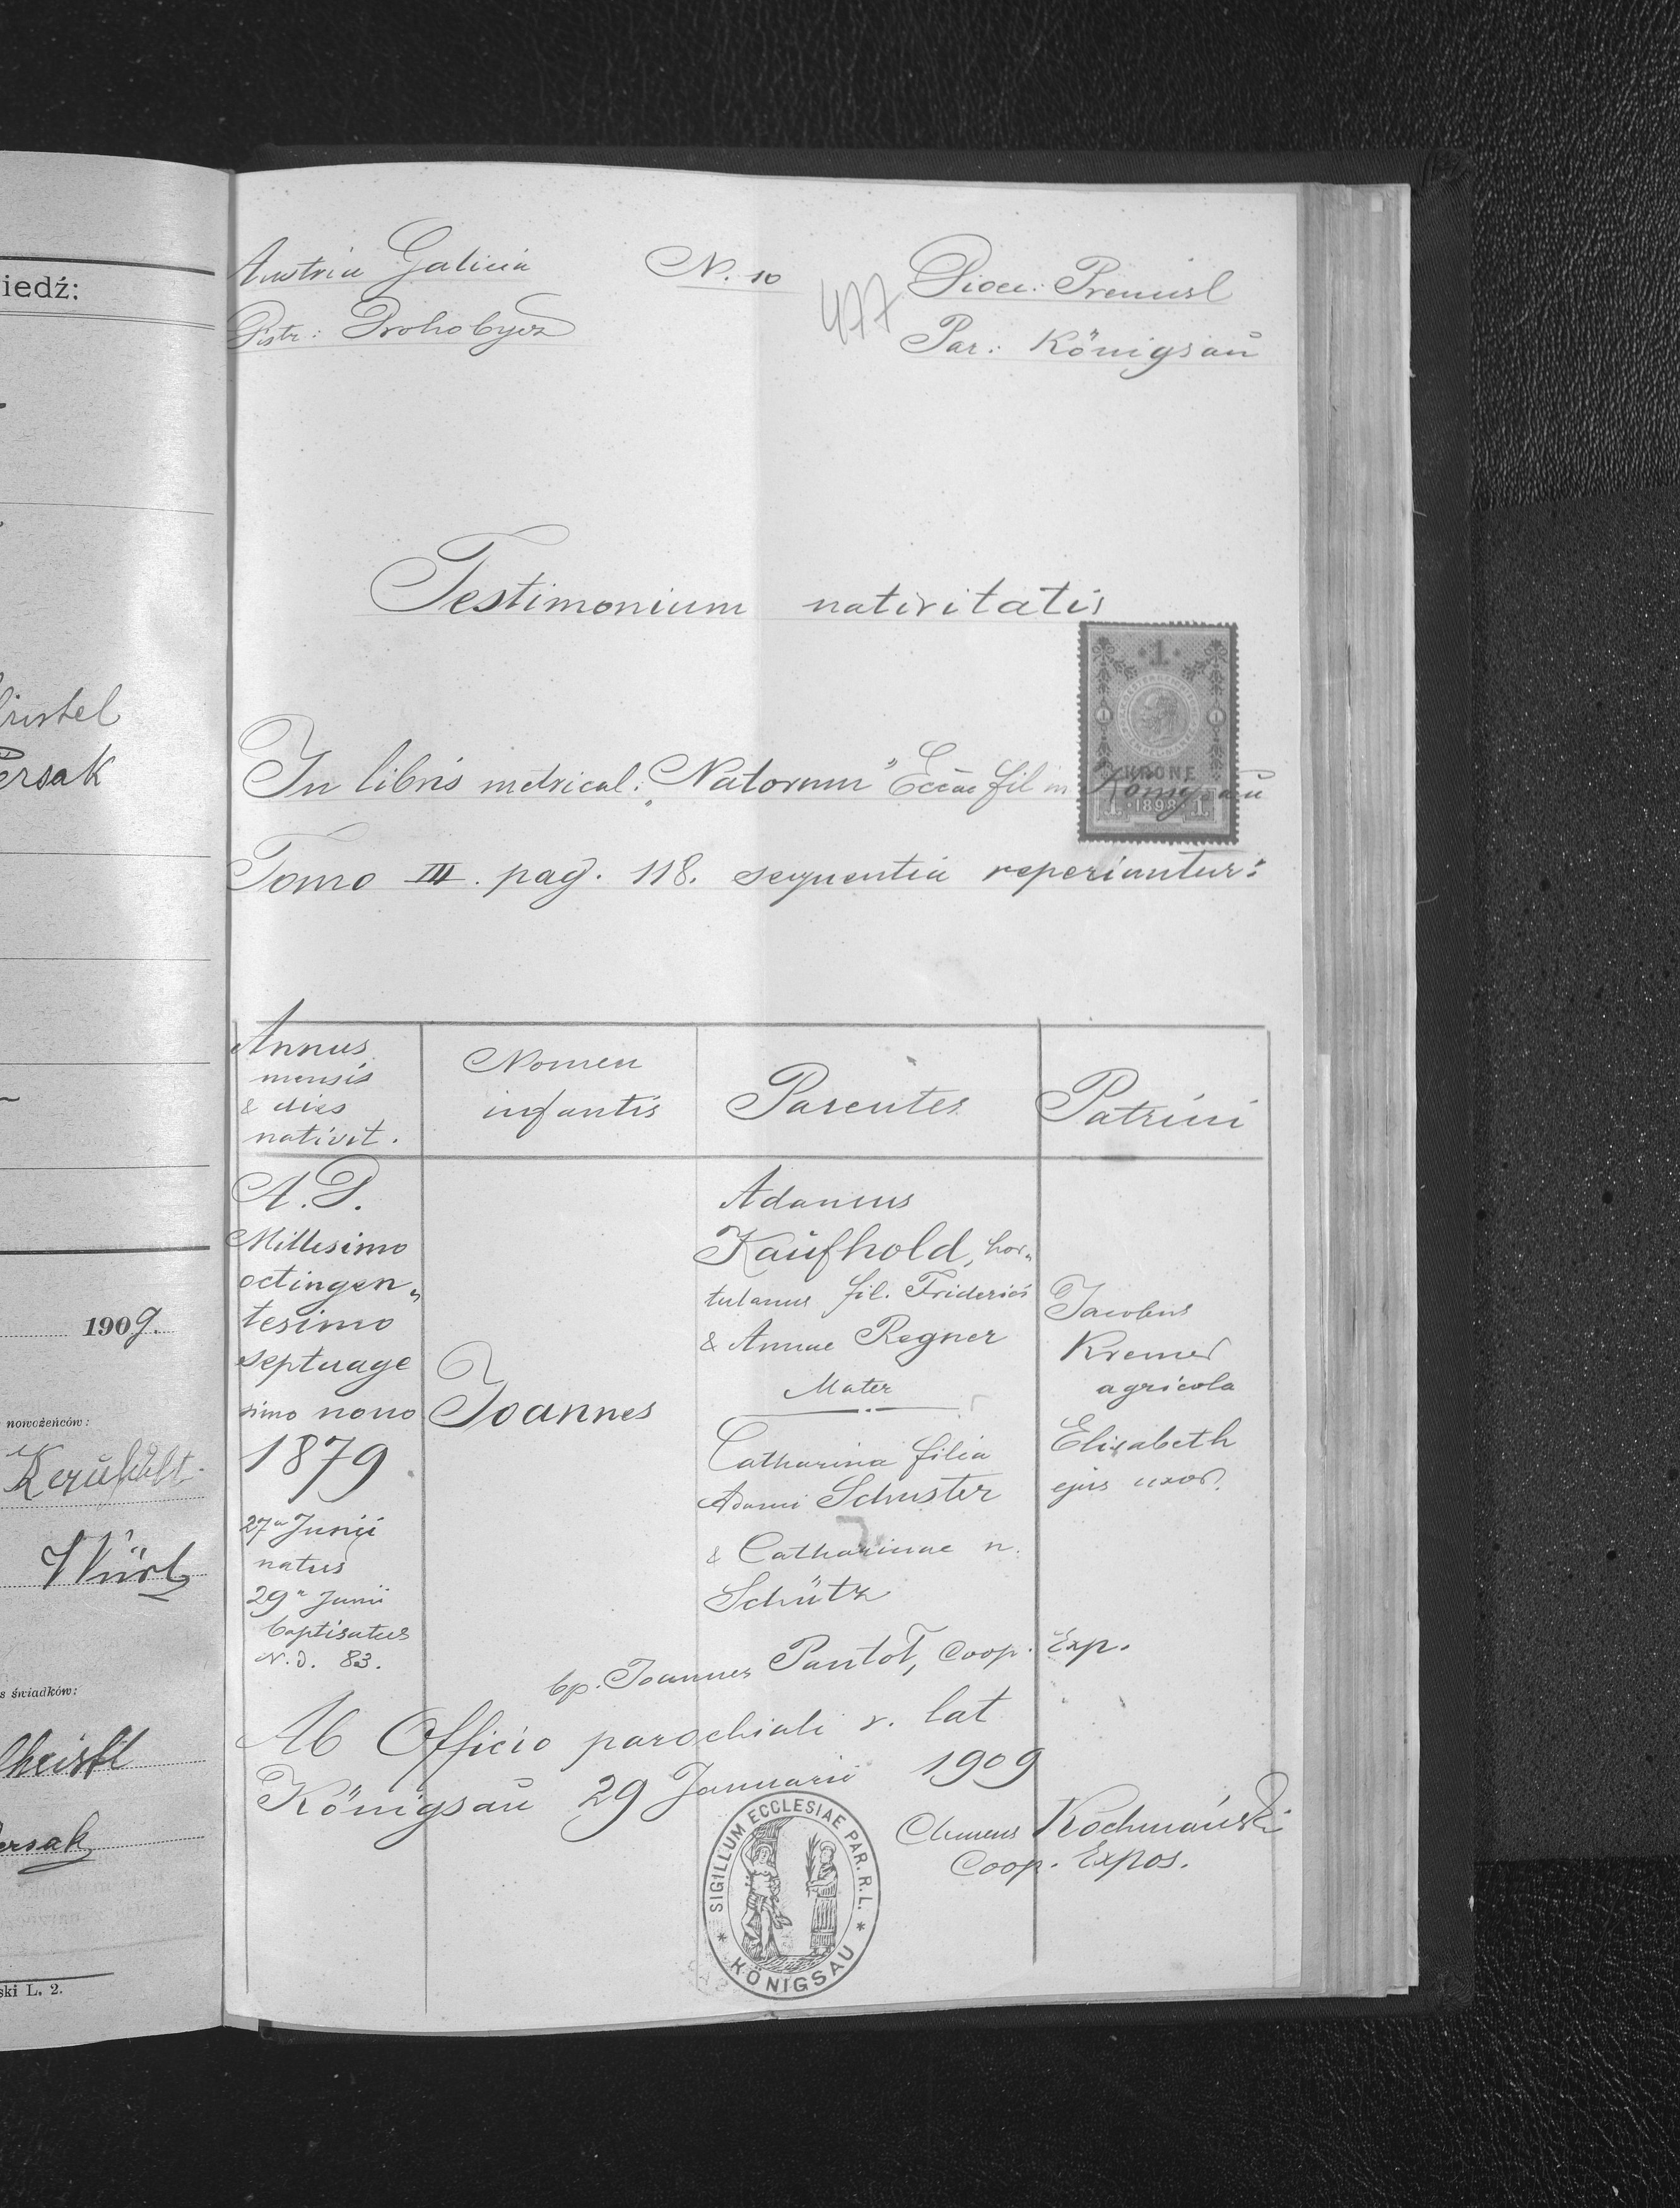 iedź:
ristel
ersak
1909.
nowożeńców:
Würtz
s świadków:
ersak
ski L. 2.
Austria Galicia
N. 10
477
Dioec: Premisl
Distr: Drohobycz
Par: Königsaŭ
Testimonium nativitatis
1
KRONE
1. 1898 1.
In libris metrical: „Natorum" Eccae fil in Königsaŭ
Tomo III. pag. 118. sequentia reperiuntur:
Annus
mensis
& dies
nativit.
Nomen
infantis
Parentes
Patrini
A.D.
Millesimo
octingen„
tesimo
septuage
simo nono
1879
27a Junii
natus
29a Junii
baptisatus
N.d. 83.
Joannes
Adamus
Kaŭfhold, hor„
tulanus fil. Friderici
& Annae Regner
Mater
Catharina filia
Adami Schuster
& Catharinae n.
Schütz
Jacobus
Kremer
agricola
Elisabeth
ejus uxor.
bp. Joannes Pantoł, Coop. Exp.
Ab Officio parochiali r. lat
Königsaŭ 29 Januarii 1909
Clemens Kochmański
Coop. Expos.
SIGILLUM ECCLESIAE PAR. R. L.
* KÖNIGSAU *